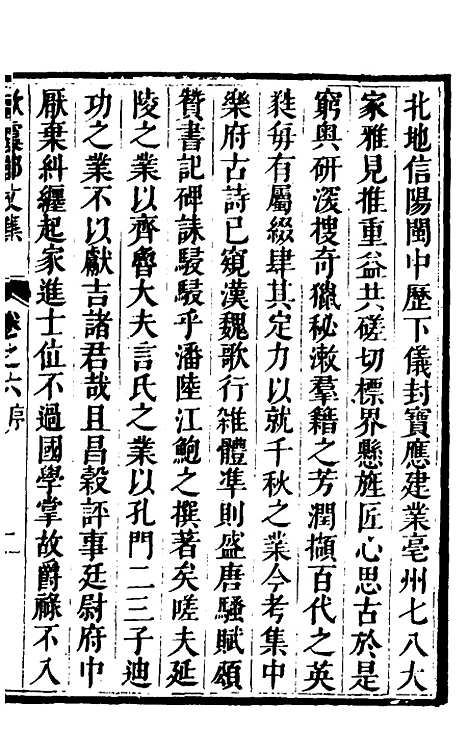 北地信陽閩中歷下儀封寶應建業亳州七八大
家雅見推重益共磋切標界懸旌匠心思古於是
窮輿研深搜奇獵秘漱羣籍之芳潤擷百代之英
蕤每有屬綴肆其定力以就千秋之業今考集中
樂府古詩已窺漢魏歌行雑體準則盛唐騷賦頌
贊書記碑誄駸駸乎潘陸江鮑之撰著矣嗟夫延
陵之業以齊魯大夫言氏之業以孔門二三子迪
功之業不以獻吉諸君哉且昌穀評事廷尉府中
厭棄糾纒起家進士位不過國學掌故爵祿不入
文集 卷之六序